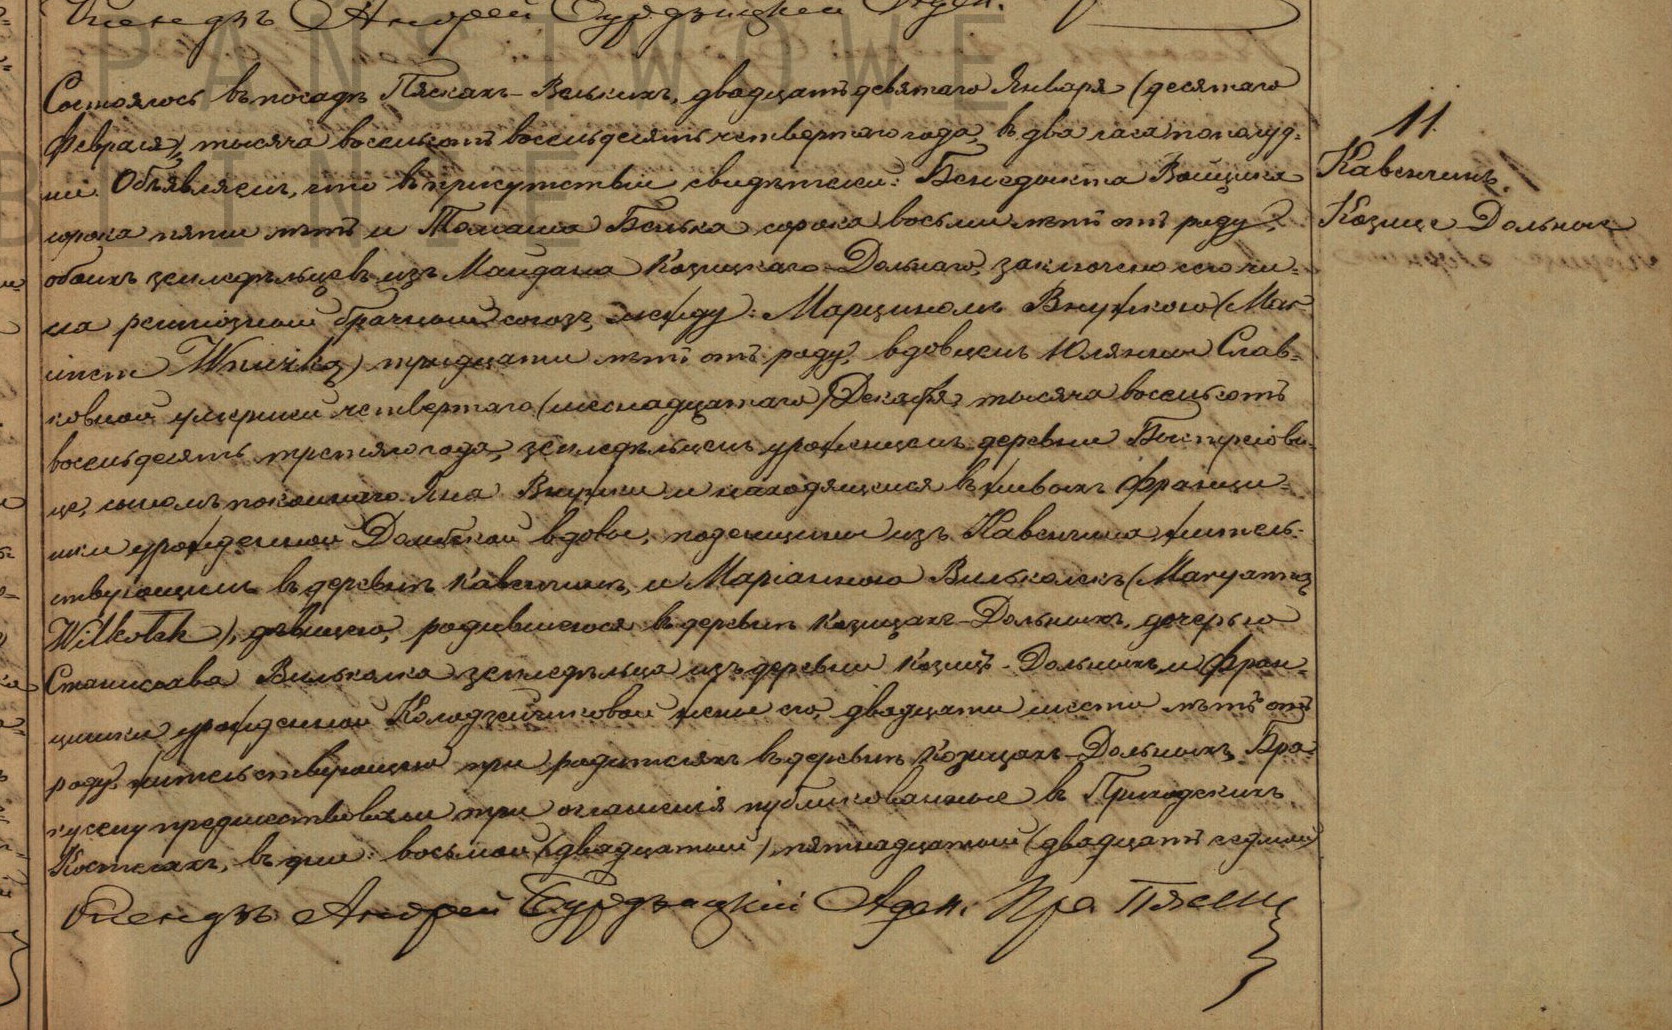 Ксендзъ Андрей
PANSTWOWE
Состоялось въ посадѣ Пяскахъ-Велькихъ, двадцать девятаго Января (десятаго
Февраля), тысяча восемьсотъ восемьдесятъ четвертаго года, въ два часа пополуд-
ни. Объявляемъ, что въ присутствіи свидѣтелей: Бенедикта Войцика
сорока пяти лѣтъ и Томаша Бенька сорока восьми лѣтъ отъ роду,
обоихъ земледѣльцевъ изъ Майдана Козицкаго-Дольнаго, заключено сего чи-
сла религіозный брачный союзъ, между: Марциномъ Внучкою (Mar-
cinem Wnuczką) тридцати лѣтъ отъ роду, вдовцемъ Юліянны Слав-
ковной умершей четвертаго (шеснадцатаго) Декабря, тысяча восемьсотъ
восемьдесятъ третяго года, земледѣльцемъ, урожденцемъ деревни
це, сыномъ покойнаго Яна Внучки и находящейся въ живыхъ Францы-
шки урожденной Домбской вдовы, поденщицы изъ Кавенчина, житель-
ствующимъ въ деревнѣ Кавенчинѣ, и Маріанною Вильколекъ (Maryanną
Wilkołek), дѣвицею, родившеюся въ деревнѣ Козицахъ-Дольныхъ, дочерью
Станислава Вильколка земледѣльца изъ деревни Козицъ-Дольныхъ, и Фран-
цишки урожденной Колодзейчиковой жены его, двадцати шести лѣтъ отъ
роду, жительствующею при родителяхъ въ деревнѣ Козицахъ-Дольныхъ. Бра-
ку сему предшествовали три оглашенія публикованные въ Приходскихъ
Костелахъ, въ дни: восьмой (двадцатый), пятнадцатый (двадцать седмый)
Ксендзъ Андрей Адм. Пра. Пяски
11.
Кавенчинъ.
Козице Дольные